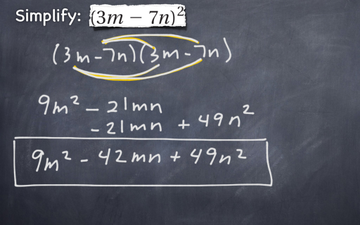 Simplify: (3m − 7n)²
(3m-7n)(3m-7n)
9m² - 21mn
- 21mn + 49n²
9m² - 42mn + 49n²